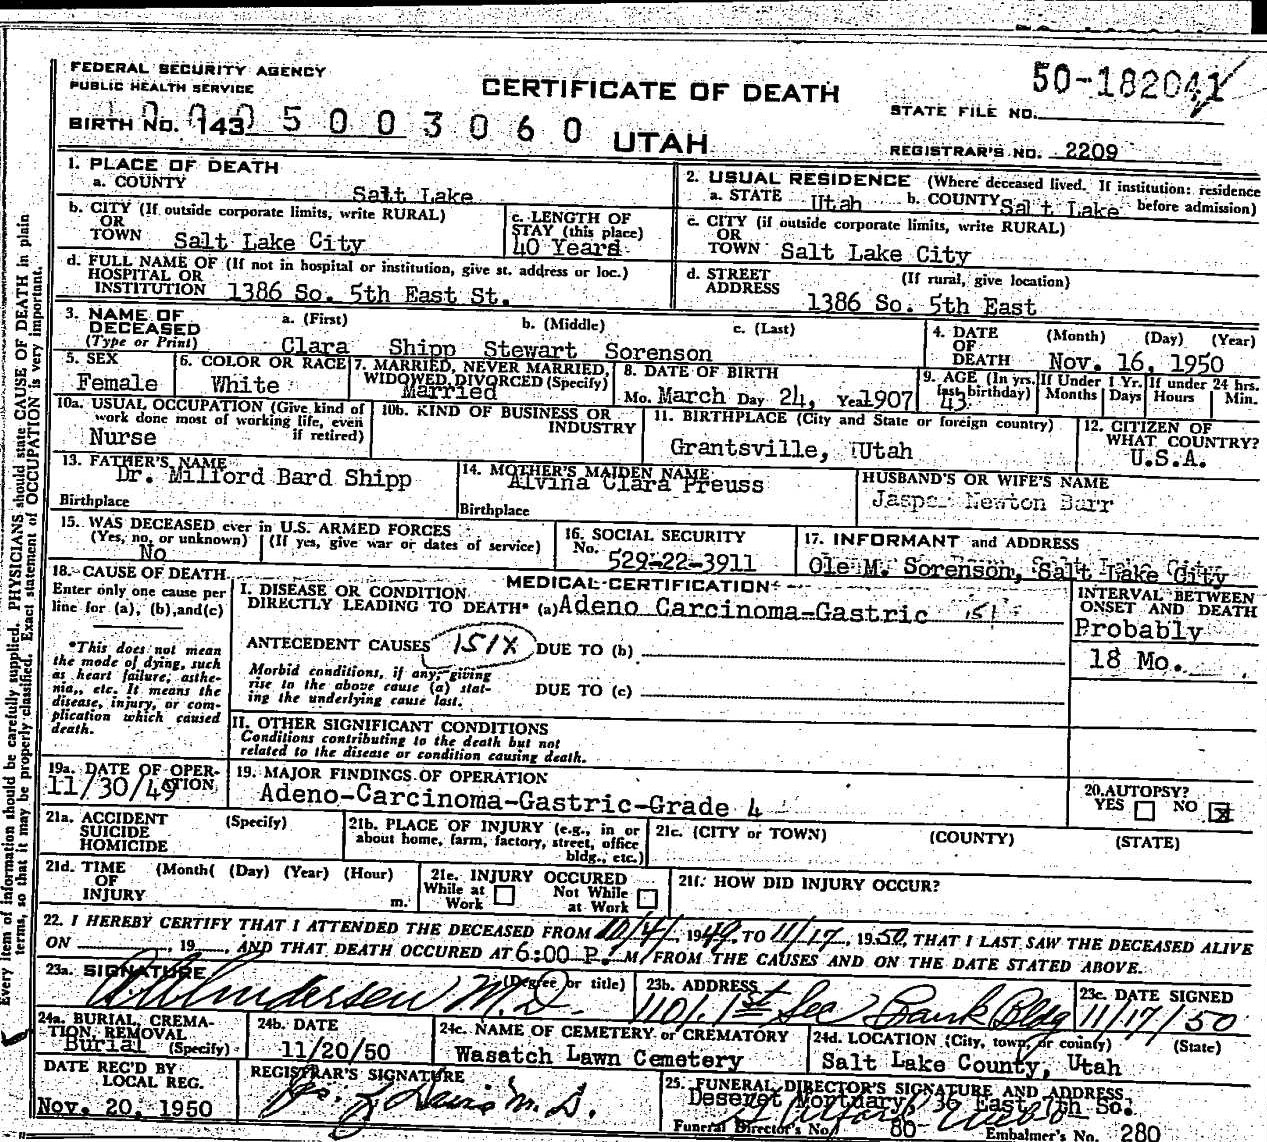 FEDERAL SECURITY AGENCY
PUBLIC HEALTH SERVICE
CERTIFICATE OF DEATH
50-182041
STATE FILE NO.
BIRTH NO. 143 5 0 0 3 0 6 0
UTAH
REGISTRAR'S NO. 2209
1. PLACE OF DEATH
a. COUNTY
Salt Lake
2. USUAL RESIDENCE (Where deceased lived. If institution: residence
a. STATE Utah b. COUNTY Salt Lake before admission)
b. CITY (If outside corporate limits, write RURAL)
OR
TOWN Salt Lake City
c. LENGTH OF
STAY (this place)
40 Years
c. CITY (if outside corporate limits, write RURAL)
OR
TOWN Salt Lake City
d. FULL NAME OF (If not in hospital or institution, give st. address or loc.)
HOSPITAL OR
INSTITUTION 1386 So. 5th East St.
d. STREET (If rural, give location)
ADDRESS
1386 So. 5th East
3. NAME OF a. (First) b. (Middle) c. (Last)
DECEASED
(Type or Print) Clara Shipp Stewart Sorenson
4. DATE (Month) (Day) (Year)
OF
DEATH Nov. 16, 1950
5. SEX
Female
6. COLOR OR RACE
White
7. MARRIED, NEVER MARRIED,
WIDOWED, DIVORCED (Specify)
Married
8. DATE OF BIRTH
Mo. March Day 24, Year 1907
9. AGE (In yrs. last birthday) If Under 1 Yr. If under 24 hrs.
43 Months Days Hours Min.
10a. USUAL OCCUPATION (Give kind of
work done most of working life, even
if retired)
Nurse
10b. KIND OF BUSINESS OR
INDUSTRY
11. BIRTHPLACE (City and State or foreign country)
Grantsville, Utah
12. CITIZEN OF
WHAT COUNTRY?
U.S.A.
13. FATHER'S NAME
Dr. Milford Bard Shipp
Birthplace
14. MOTHER'S MAIDEN NAME
Alvina Clara Preuss
Birthplace
HUSBAND'S OR WIFE'S NAME
Jasper Newton Barr
15. WAS DECEASED ever in U.S. ARMED FORCES
(Yes, no, or unknown) (If yes, give war or dates of service)
No
16. SOCIAL SECURITY
No. 529-22-3911
17. INFORMANT and ADDRESS
Ole M. Sorenson, Salt Lake City
18. CAUSE OF DEATH
Enter only one cause per
line for (a), (b), and (c)
*This does not mean
the mode of dying, such
as heart failure, asthe-
nia,, etc. It means the
disease, injury, or com-
plication which caused
death.
MEDICAL CERTIFICATION
I. DISEASE OR CONDITION
DIRECTLY LEADING TO DEATH* (a) Adeno Carcinoma-Gastric 151
ANTECEDENT CAUSES 151X DUE TO (b)
Morbid conditions, if any, giving
rise to the above cause (a) stat-
ing the underlying cause last.
DUE TO (c)
II. OTHER SIGNIFICANT CONDITIONS
Conditions contributing to the death but not
related to the disease or condition causing death.
INTERVAL BETWEEN
ONSET AND DEATH
Probably
18 Mo.
19a. DATE OF OPER-
ATION
11/30/49
19. MAJOR FINDINGS OF OPERATION
Adeno-Carcinoma-Gastric-Grade 4
20. AUTOPSY?
YES NO X
21a. ACCIDENT (Specify)
SUICIDE
HOMICIDE
21b. PLACE OF INJURY (e.g., in or
about home, farm, factory, street, office
bldg., etc.)
21c. (CITY or TOWN) (COUNTY) (STATE)
21d. TIME (Month( (Day) (Year) (Hour)
OF
INJURY m.
21e. INJURY OCCURED
While at Not While
Work at Work
21f. HOW DID INJURY OCCUR?
22. I HEREBY CERTIFY THAT I ATTENDED THE DECEASED FROM 10/4/, 1949, TO 11/17, 1950, THAT I LAST SAW THE DECEASED ALIVE
ON , 19 , AND THAT DEATH OCCURED AT 6:00 P. M. FROM THE CAUSES AND ON THE DATE STATED ABOVE.
23a. SIGNATURE (Degree or title)
Andersen M.D.
23b. ADDRESS
1101 1st Sec Bank Bldg
23c. DATE SIGNED
11/17/50
24a. BURIAL, CREMA-
TION, REMOVAL
Burial (Specify)
24b. DATE
11/20/50
24c. NAME OF CEMETERY or CREMATORY
Wasatch Lawn Cemetery
24d. LOCATION (City, town, or county) (State)
Salt Lake County, Utah
DATE REC'D BY
LOCAL REG.
Nov. 20, 1950
REGISTRAR'S SIGNATURE
M.D.
25. FUNERAL DIRECTOR'S SIGNATURE AND ADDRESS
Deseret Mortuary, 36 East 7th So.
Funeral Director's No. 80 Embalmer's No. 280
Every item of information should be carefully supplied. PHYSICIANS should state CAUSE OF DEATH in plain
terms, so that it may be properly classified. Exact statement of OCCUPATION is very important.